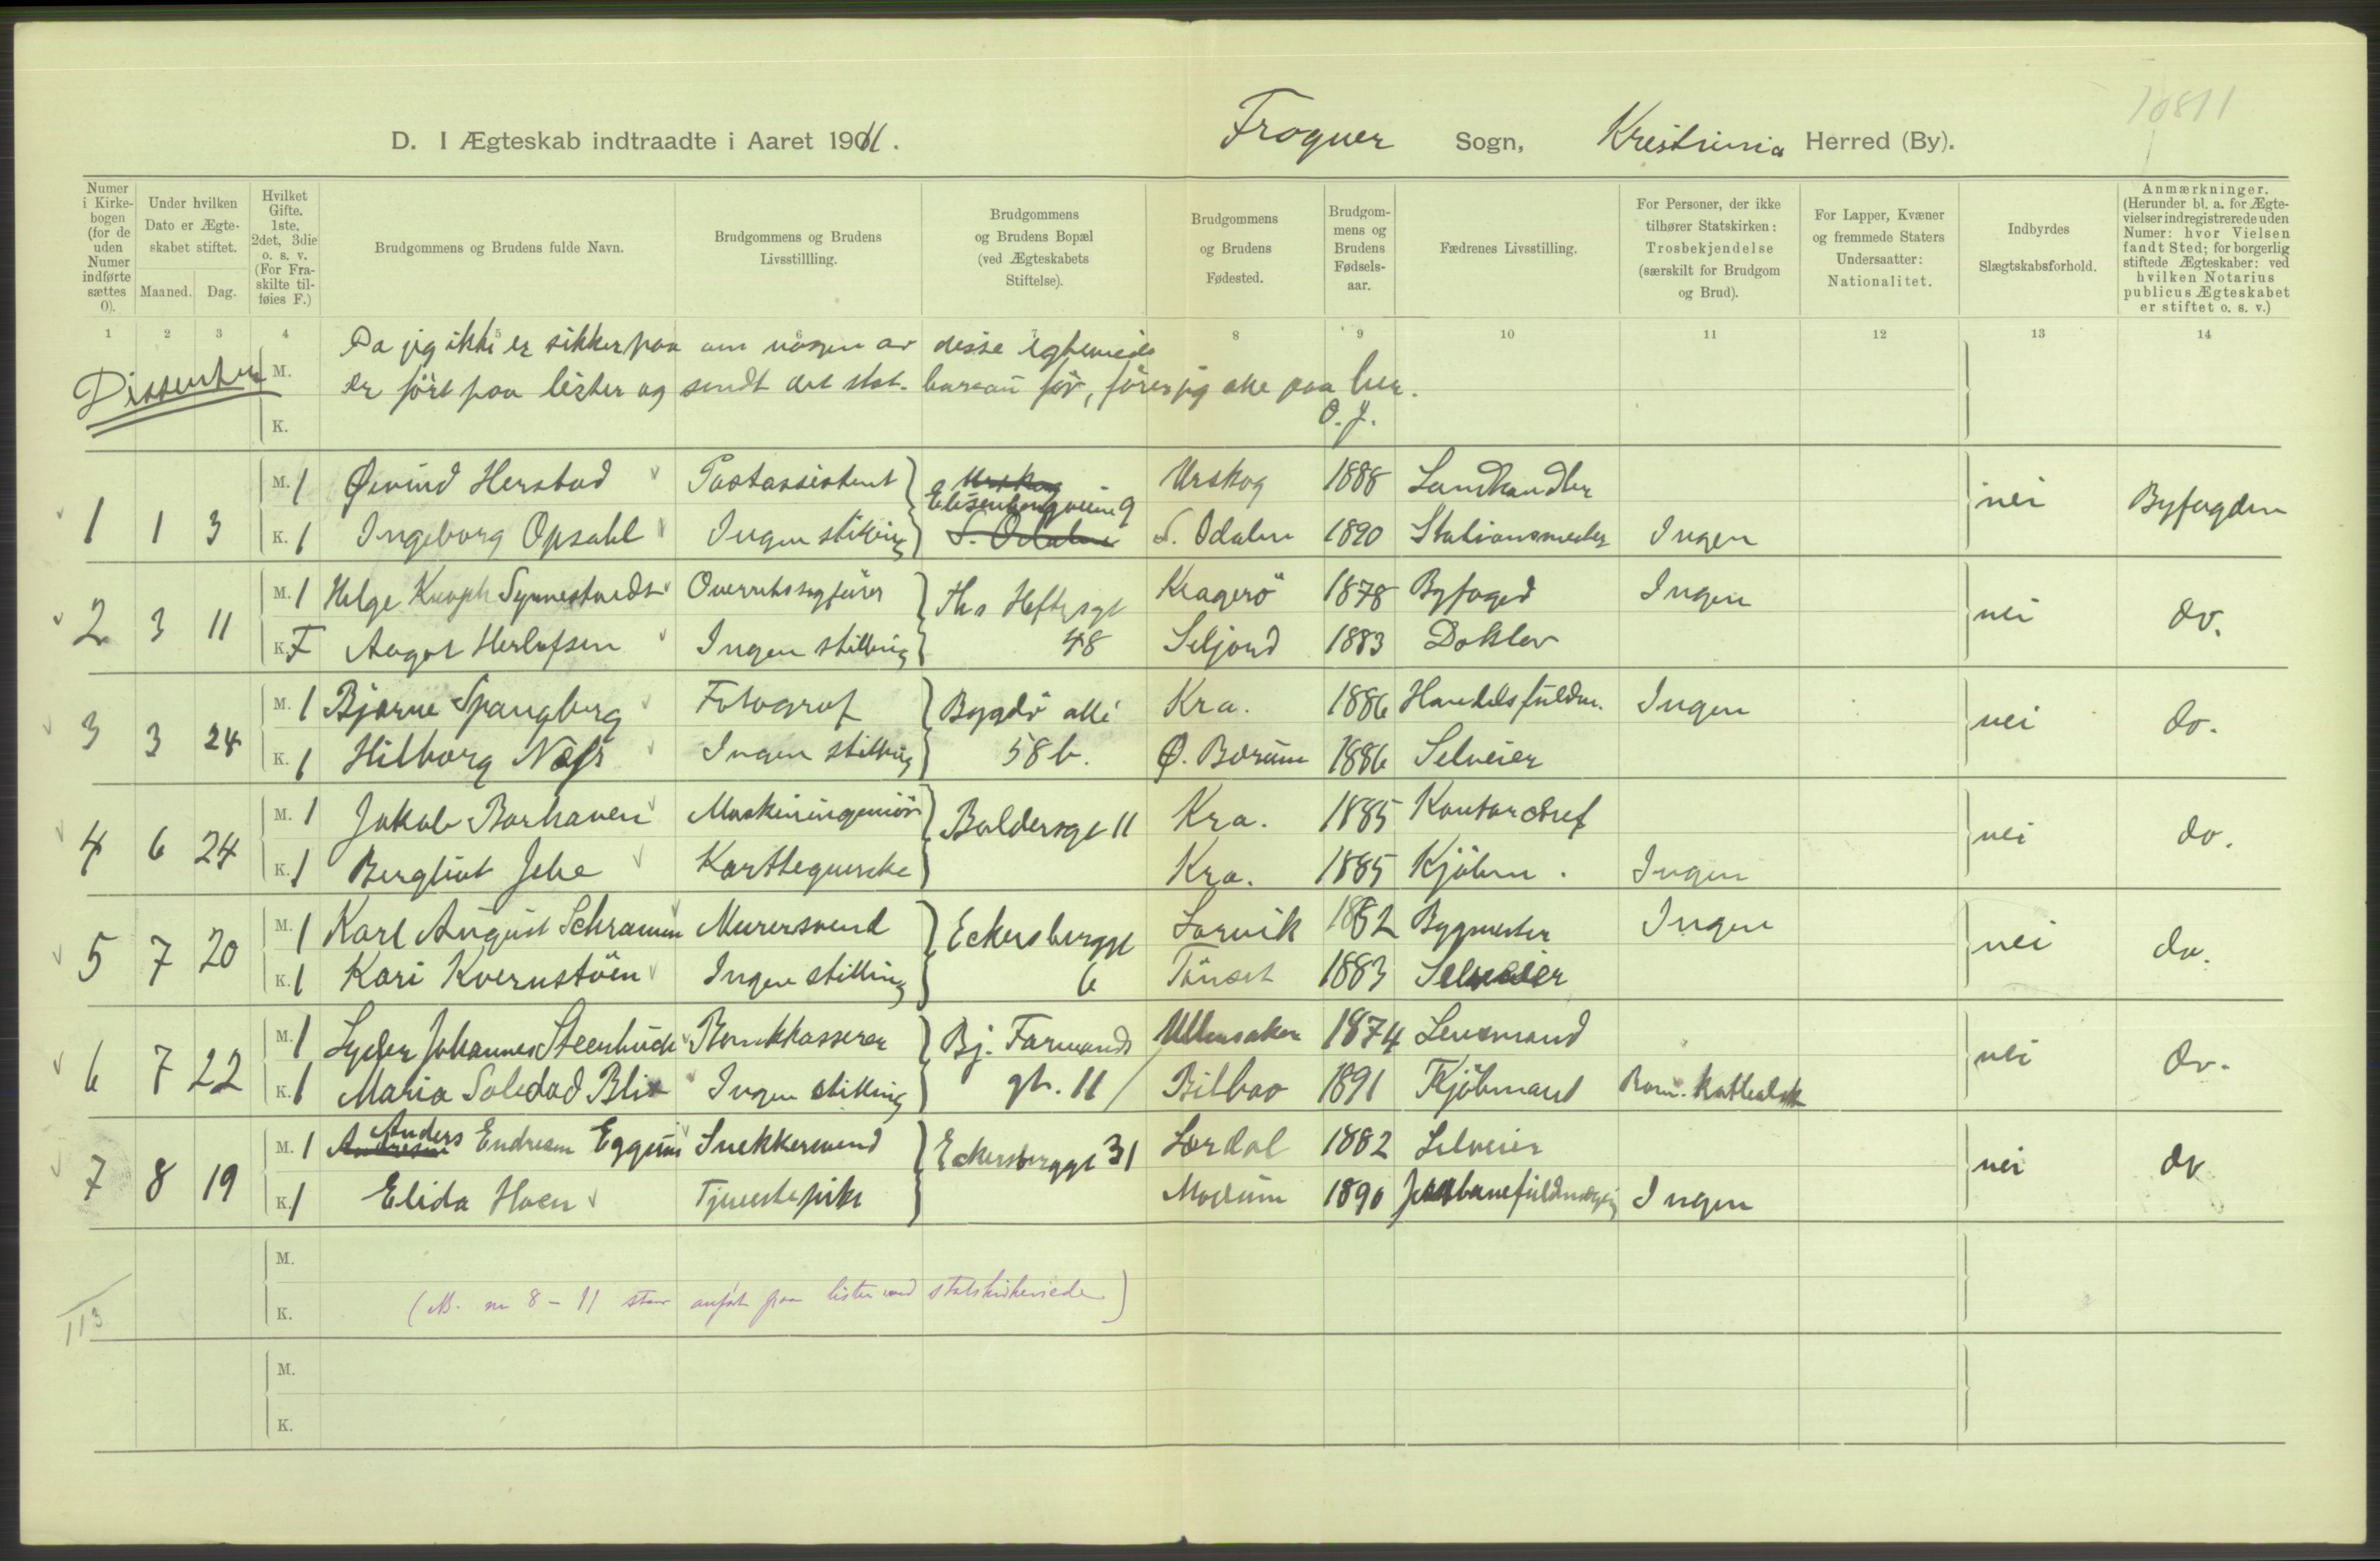 10811
D. I Ægteskab indtraadte i Aaret 1911. Frogner Sogn, Kristiania Herred (By).
Numer i Kirkebogen (for de uden Numer indførte sættes 0).
Under hvilken Dato er Ægteskabet stiftet.
Maaned. Dag.
Hvilket Gifte. 1ste, 2det, 3die o. s. v. (For Fraskilte tilføies F.)
Brudgommens og Brudens fulde Navn.
Brudgommens og Brudens Livsstillling.
Brudgommens og Brudens Bopæl (ved Ægteskabets Stiftelse).
Brudgommens og Brudens Fødested.
Brudgommens og Brudens Fødselsaar.
Fædrenes Livsstilling.
For Personer, der ikke tilhører Statskirken: Trosbekjendelse (særskilt for Brudgom og Brud).
For Lapper, Kvæner og fremmede Staters Undersaatter: Nationalitet.
Indbyrdes Slægtskabsforhold.
Anmærkninger. (Herunder bl. a. for Ægtevielser indregistrerede uden Numer: hvor Vielsen fandt Sted; for borgerlig stiftede Ægteskaber: ved hvilken Notarius publicus Ægteskabet er stiftet o. s. v.)
1 2 3 4 5 6 7 8 9 10 11 12 13 14
Da jeg ikke er sikker paa om nogen av disse
Dissentere M. er ført paa lister og sendt det stat. bureau før, fører jeg alle paa her.
K. O. J.
M. 1 Øivind Herstad Postassistent Urskog Urskog 1888 Landhandler
1 1 3 Elisenbergveien 9 nei Byfogden
K. 1 Ingeborg Opsahl Ingen stilling S. Odalen S. Odalen 1890 Stationsmester Ingen
M. 1 Helge Knoph Synnestvedt Overretssagfører Ths Heftyesgt Kragerø 1878 Byfoged Ingen
2 3 11 nei do.
K. F Aagot Herlofsen Ingen stilling 48 Seljord 1883 Doktor
M. 1 Bjarne Spangberg Fotograf Bygdø allé Kra. 1886 Handelsfuldm. Ingen
3 3 24 nei do.
K. 1 Hilborg Næss Ingen stilling 58 b. Ø. Bærum 1886 Selveier
M. 1 Jakob Borhaven Maskiningeniør Baldersgt 11 Kra. 1885 Kontorchef
4 6 24 nei do.
K. 1 Bergliot Jehe Karttegnerske Kra. 1885 Kjøbm. Ingen
M. 1 Karl August Schramm Murersvend Eckersbergsgt Larvik 1882 Bygmester Ingen
5 7 20 nei do.
K. 1 Kari Kvernstöen Ingen stilling 6 Tönset 1883 Selveier
M. 1 Lyder Johannes Steenbuch Bankkasserer Bj. Farmands Ullensaker 1874 Lensmand
6 7 22 nei do.
K. 1 Maria Soledad Blix Ingen stilling gt. 11 Bilbao 1891 Kjøbmand Rom. katholsk
M. 1 Anders Endresen Eggum Snekkersvend Eckersbergsgt 31 Lærdal 1882 Selveier
7 8 19 nei do
K. 1 Elida Hoen Tjenestepike Modum 1890 Jernbanefuldmægtig Ingen
M.
K. (M. nr 8 - 11 staar anført paa listen med statskirkevie de)
113
M.
K.